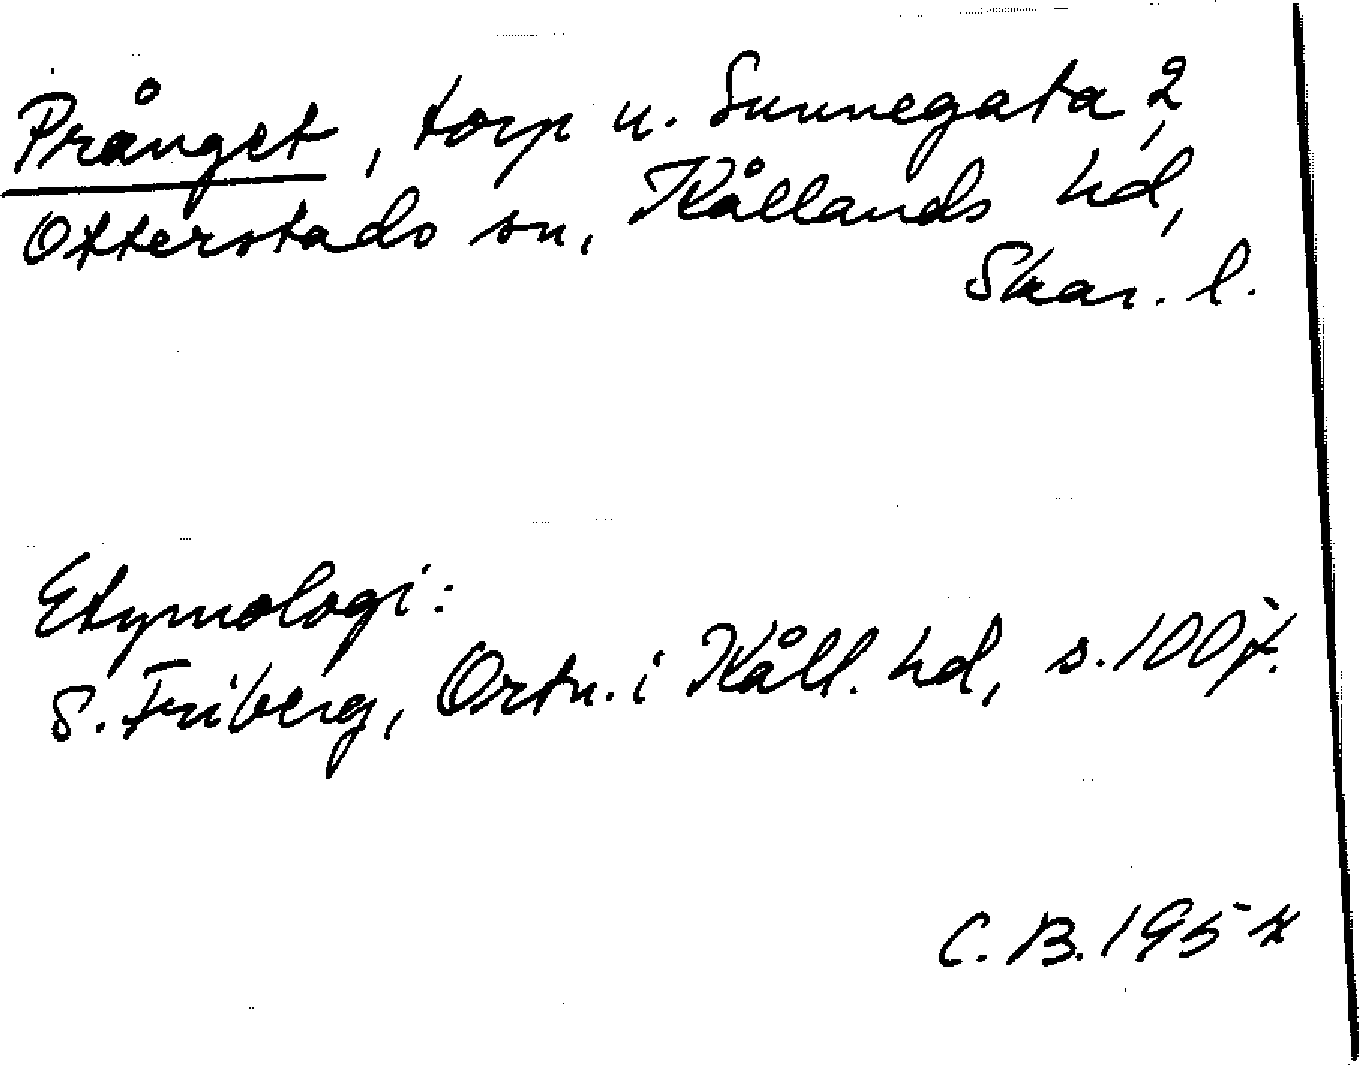 Prånget, torp u. Sunnegata 2,
Otterstads sn, Kållands hd,
Skar. l.
Etymologi:
S. Friberg, Ortn. i Kåll. hd, s. 100 f.
C. B. 195